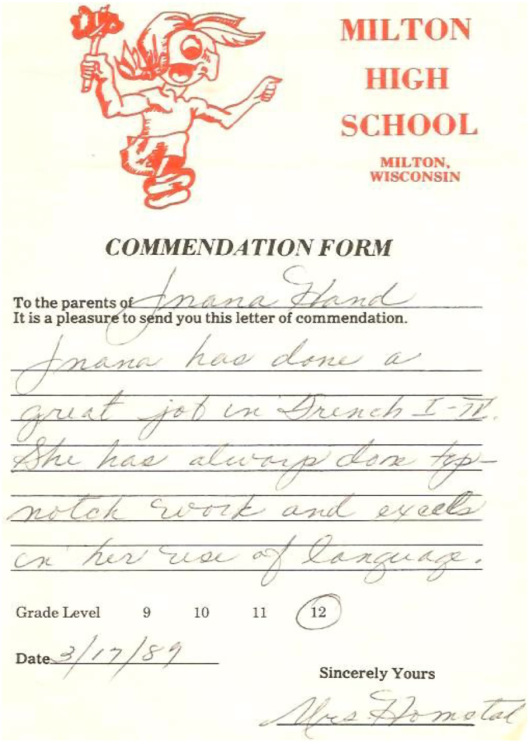 MILTON
HIGH
SCHOOL
MILTON,
WISCONSIN
COMMENDATION FORM
To the parents of Inana Hand
It is a pleasure to send you this letter of commendation.
Inana has done a
great job in French I-IV.
She has always done top-
notch work and excels
in her use of language.
Grade Level 9 10 11 12
Date 3/17/89
Sincerely Yours
Mrs. Homstad